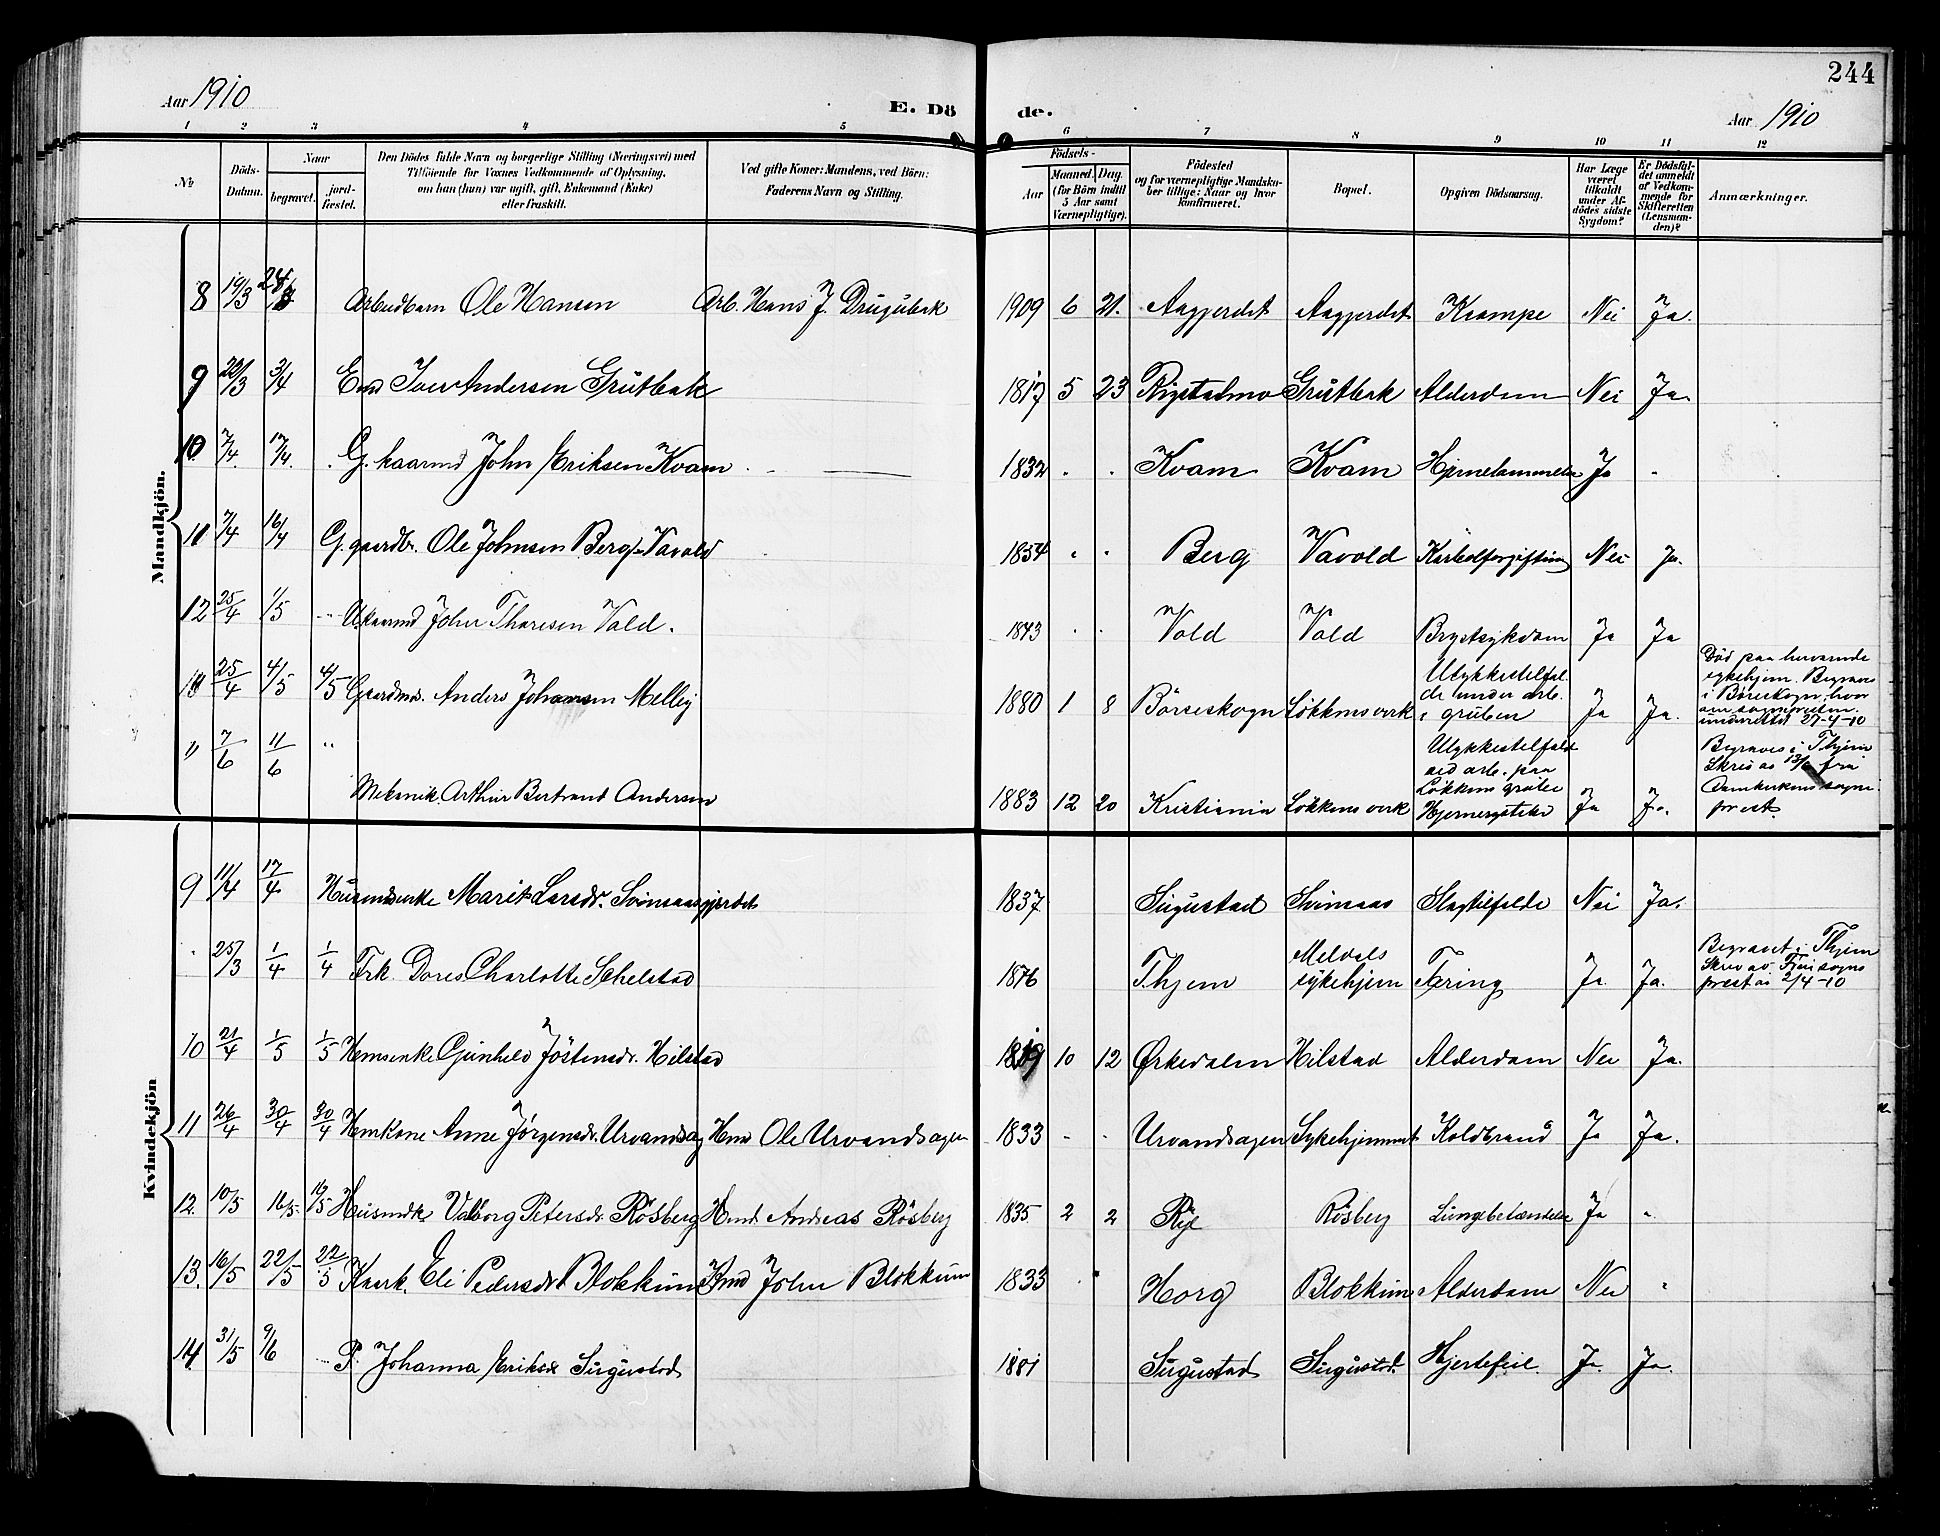 244
Aar 1910
E. Dö de.
Aar 1910
1 2 3 4 5 6 7 8 9 10 11 12
No
Döds-Datum.
Naar
begravet.
jord-fæstet.
Den Dödes fulde Navn og borgerlige Stilling (Næringsvei) med
Tilföiende for Voxnes Vedkommende af Oplysning,
om han (hun) var ugift, gift, Enkemand (Enke)
eller fraskilt.
Ved gifte Koner: Mandens, ved Börn:
Faderens Navn og Stilling.
Födsels-
Aar
Maaned. Dag.
(for Börn indtil
5 Aar samt
Værnepligtige).
Födested
og for værnepligtige Mandska-
ber tillige: Naar og hvor
konfirmeret.
Bopæl.
Opgiven Dödsaarsag.
Har Læge
været
tilkaldt
under Af-
dödes sidste
Sygdom?
Er Dödsfal-
det anmeldt
af Vedkom-
mende for
Skifteretten
(Lensman-
den)?
Anmærkninger.
Mandkjön.
8 19/3 Arbeidbarn Ole Hansen Arb. Hans J. Drugubak 1909 6 21. Aagjerdet Aagjerdet Krampe Nei Ja.
9 3/4 Emd Iver Andersen Grutbak 1817 5 23 Grutbak Alderdom Nei Ja.
10 7/4 17/4 G. kaarmd John Eriksen Kvam 1832 Kvam Kvam Ja
11 7/4 16/4 G. gaardbr. Ole Johnsen Berg Vavold 1854 Berg Vavold Karbolforgiftning Nei Ja.
12 25/4 1/5 John Thoresen Vold. 1843 Vold Vold Brystsykdom Ja Ja
25/4 4/5 4/5 Anders Johansen Melleg 1880 1 8 Börseskogn Løkkens verk Ulykkestilfæl-
de under arb.
i gruben Ja Ja.
Död paa herværende
sykehjem. Begraves
i Börseskogn, hvor
om sognepresten
underrettet 27-4-10
" 7/6 11/6 "
Mekanik. Arthur Bertrand Andersen 1883 12 20 Kristiania Løkkens verk
Ulykkestilfæld
ved arb. paa
Løkkens grube
Hjernerystelse Ja Ja.
Begraves i Thjem
Skriv av 13/6 fra
Domkirkens sogne-
prest.
Kvindekjön
9 11/4 17/4 Husmdsenke Marit Larsdr. Svinsaasgjerdet 1837 Sugustad Svinsaas Slagtilfælde Nei Ja.
" 25/3 1/4 1/4 Frk. Dores Charlotte Schelstad 1876 Thjem Meldals
sykehjem Tæring Ja. Ja.
Begravet i Thjem
Skriv av sogne
prest av 2/4-10
10 21/4 1/5 1/5 Gunhild Jöstensdr. Hilstad 1819 10 12 Ørkedalen Hilstad Alderdom Nei Ja.
11 26/4 30/4 30/4 Hmkone Anne Jørgensdr. Urvandsag Hmd Ole Urvandsagen 1833 Urvandsagen Sykehjemmet Koldbrand Ja Ja.
12. 10/5 16/5. Husmdk Valborg Petersdr. Rösberg Hmd. Andreas Rösberg 1835 2 2 Rye Rösberg Lungebetændelse Ja "
13. 16/5 22/5 22/5 Kaark. Eli Pedersdr. Blokkum Kmd John Blokkum 1833 Horg Blokkum Alderdom Nei "
14 31/5 9/6 P. Johanna Eriksdr Sugustad 1881 Sugustad Sugustad Hjertefeil. Ja. Ja.